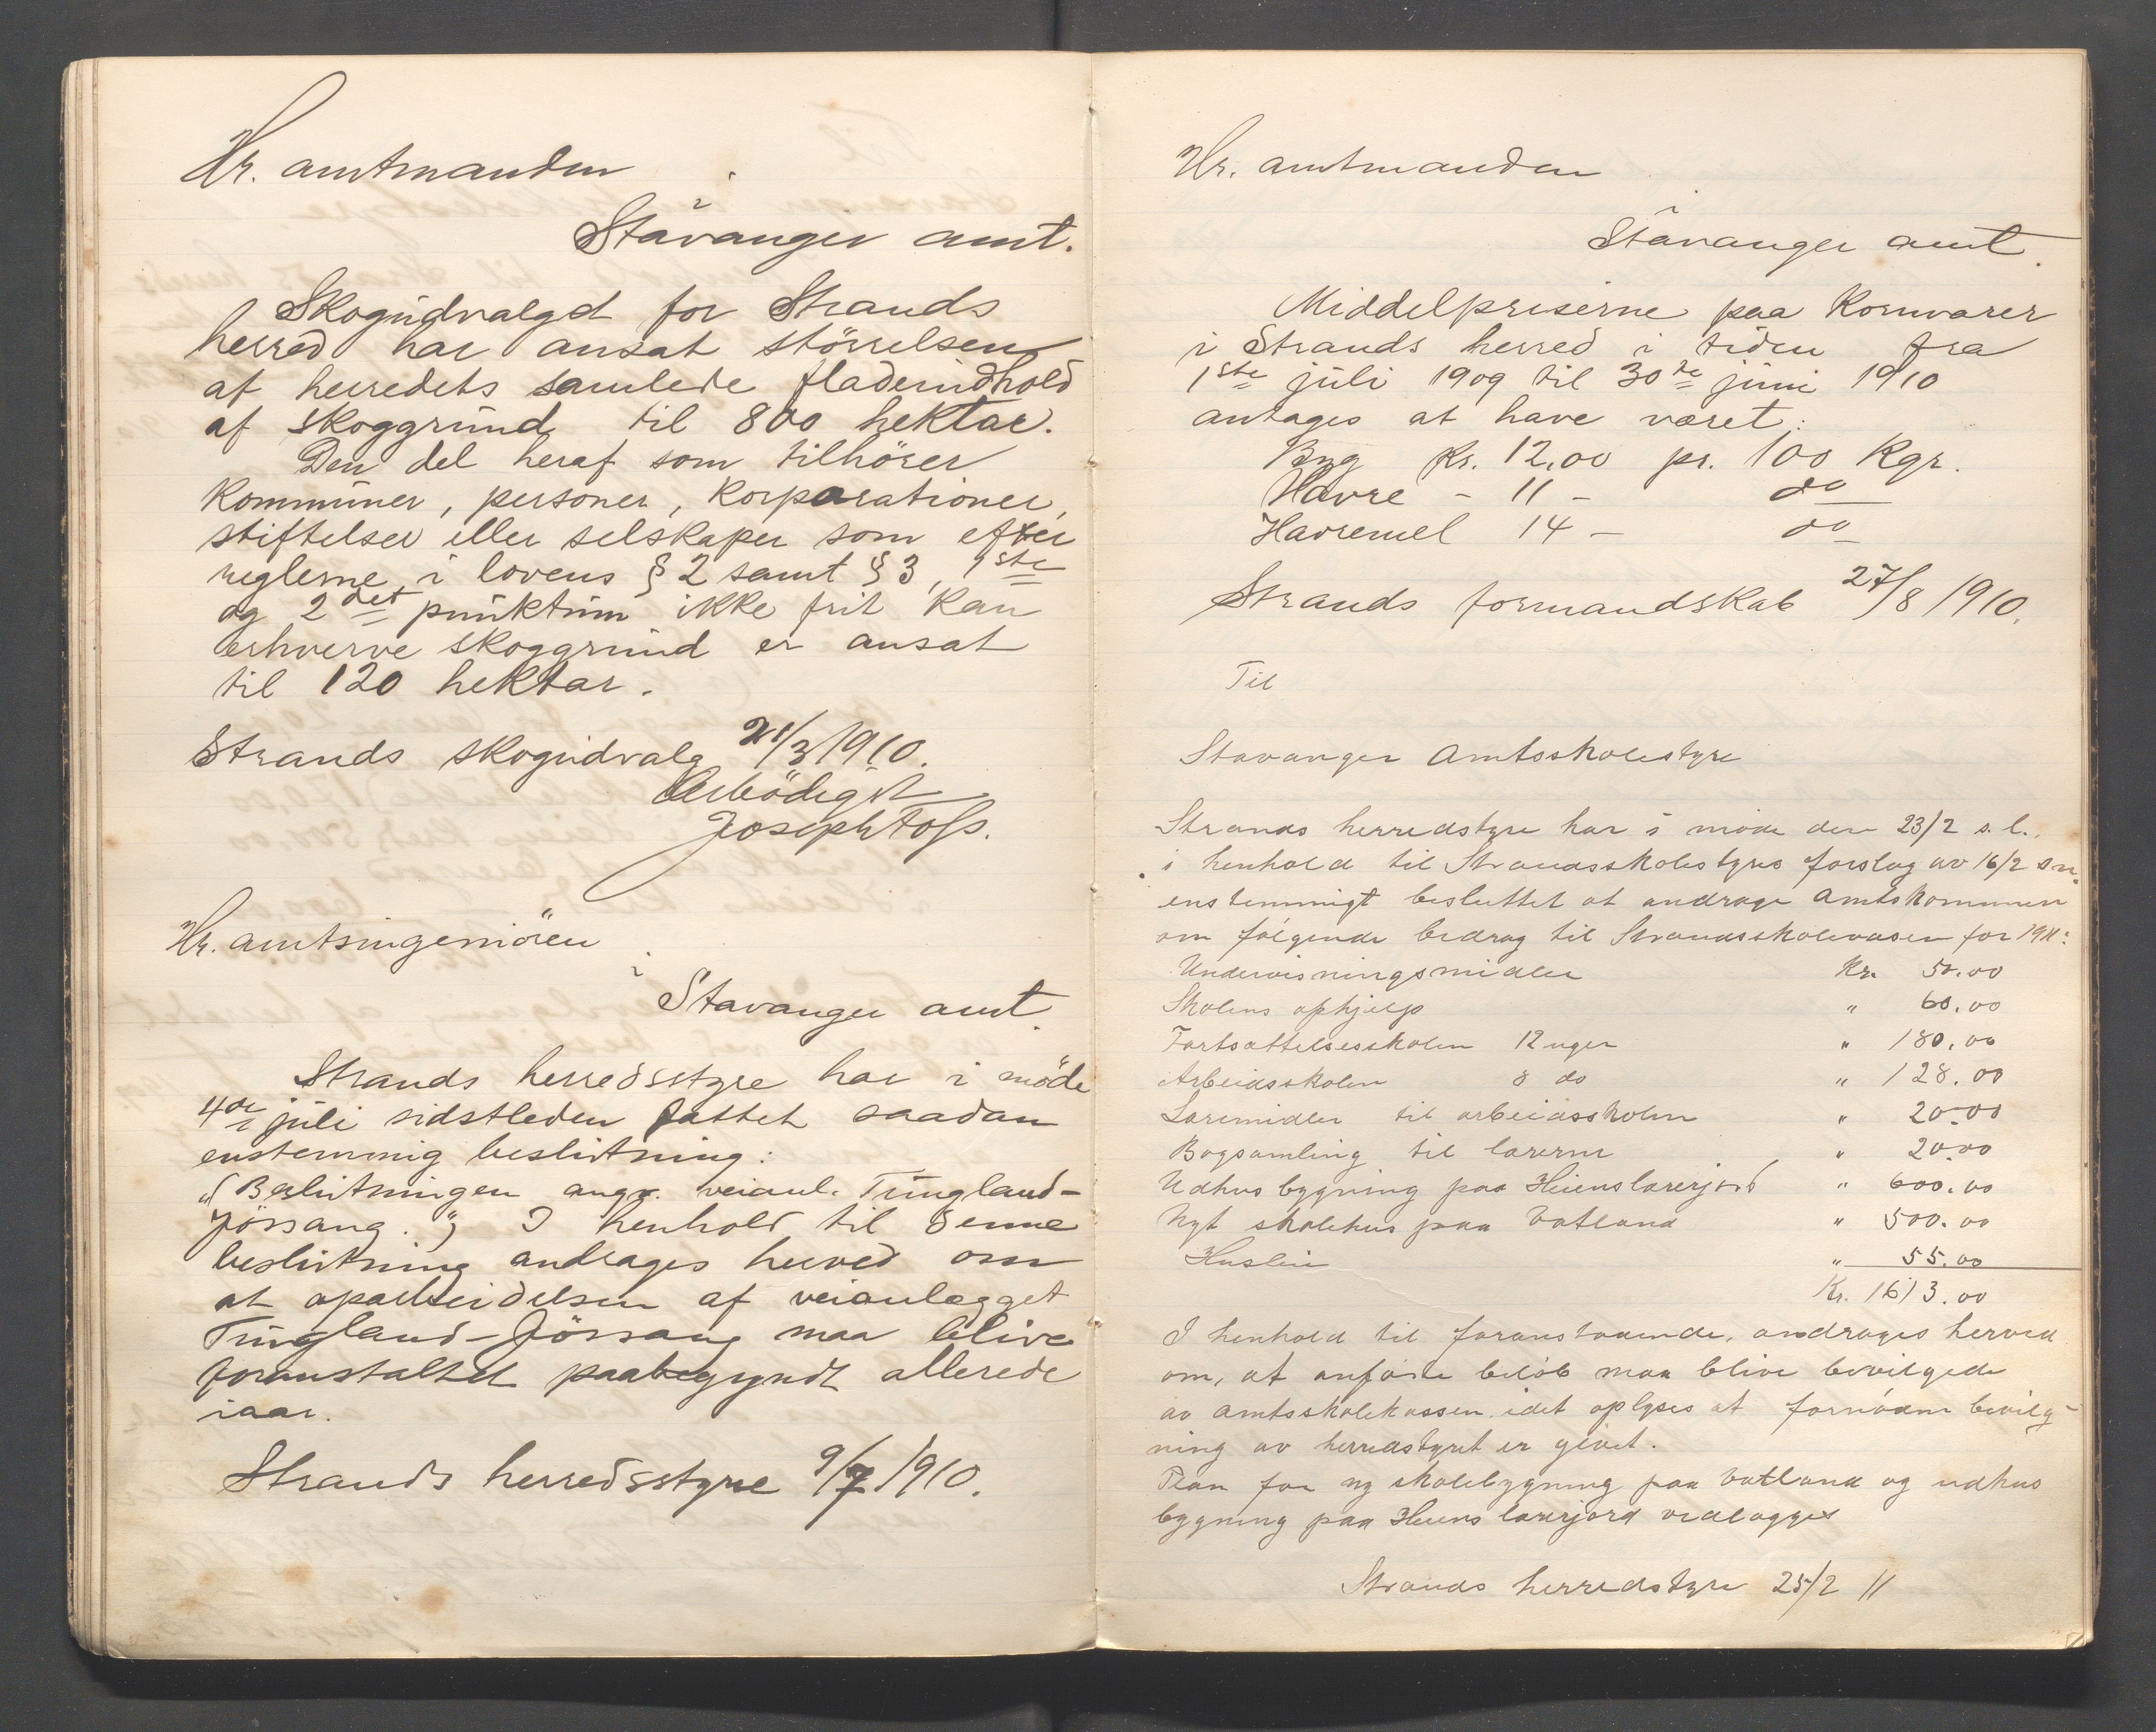 Hr. amtmanden
i
Stavanger amt.
Skogudvalget for Strands
herred har ansat störrelsen
af herredets samlede fladeindhold
af skoggrund til 800 hektar.
Den del heraf som tilhörer
kommuner, personer, korporationer,
stiftelser eller selskaper som efter
reglerne i lovens § 2 samt § 3, 1ste
og 2det punktum ikke frit kan
erhverve skoggrund er ansat
til 120 hektar.
Strands skogudvalg 21/3 1910.
Ærbödigst
Joseph Tofs.
Hr. amtsingeniören
i
Stavanger amt.
Strands herredsstyre har i möde
4de juli sidstleden fattet saadan
enstemmig beslutning:
"(Beslutningen angr. veianl. Tungland-
Jössang.") I henhold til denne
beslutning andrages herved om
at oparbeidelsen af veianlægget
Tungland-Jössang maa blive
foranstaltet paabegyndt allerede
iaar.
Strands herredsstyre 9/7 1910.
Hr. amtmanden
i
Stavanger amt.
Middelpriserne paa Kornvarer
i Strands herred i tiden fra
1ste juli 1909 til 30te juni 1910
antages at have været:
Byg Kr. 12,00 pr. 100 Kgr.
Havre - 11 - do
Havremel 14 - do
Strands formandskab 27/8 1910.
Til
Stavanger Amtsskolestyre
Strands herredstyre har i møde den 23/2 s. l.
i henhold til Strandsskolestyres forslag av 16/2 s m.
enstemmigt besluttet at andrage Amtskommunen
om følgende bidrag til Strandsskolevæsen for 1911:
Undervisningsmidler Kr. 50.00
Skolens ophjelp " 60.00
Fortsættelsesskolen 12 uger " 180.00
Arbeidsskolen 8 do " 128.00
Læremidler til arbeidsskolen " 20.00
Bogsamling til lærerne " 20.00
Udhusbygning paa Heienslærerjord " 600.00
Nyt skolehus paa Vatland " 500.00
Huslein " 55.00
Kr. 1613.00
I henhold til foranstaaende, andrages herved
om, at anførte beløb maa blive bevilgede
av amtsskolekassen, idet oplyses at fornøden bevilg-
ning av herredstyret er givet.
Plan for ny skolebygning paa Vatland og udhus
bygning paa Heiens lærerjord vedlægges
Strands herredstyre 25/2 11